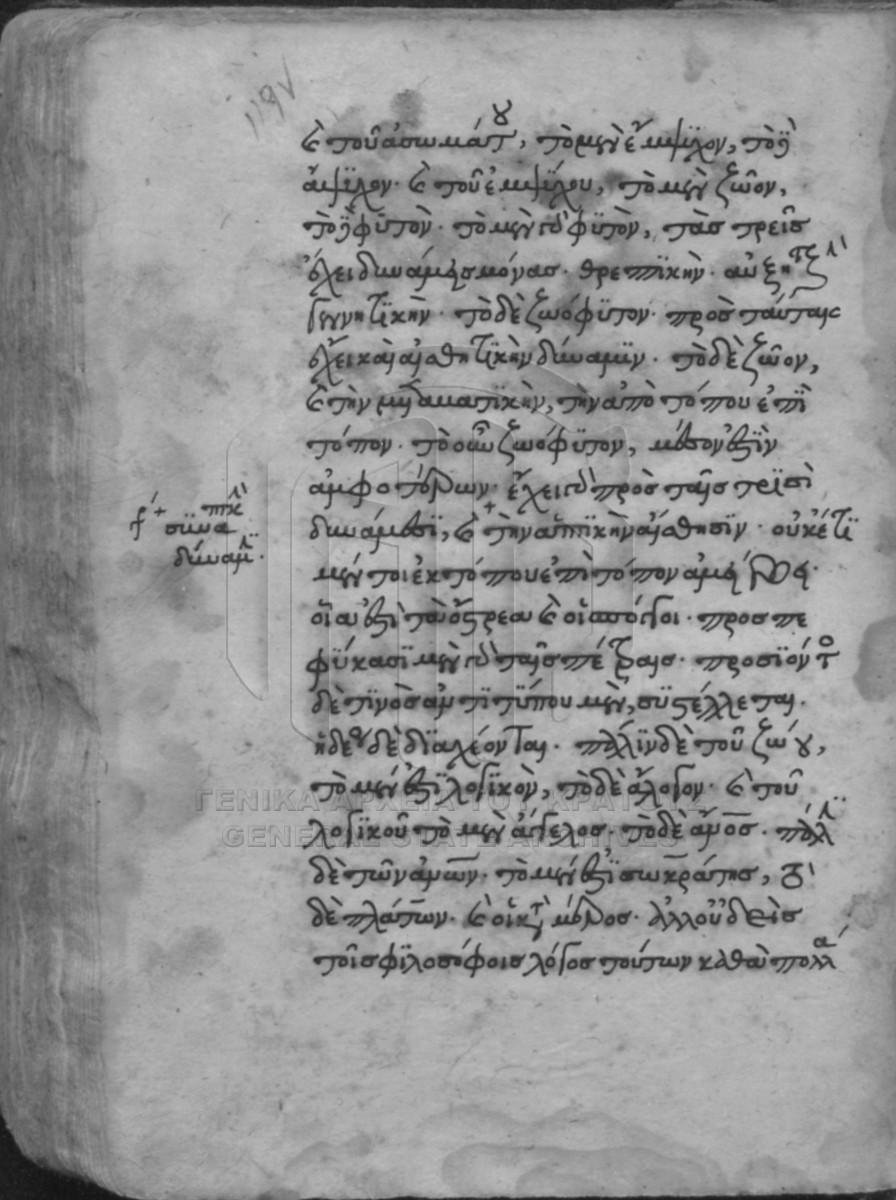 119v
καὶ τοῦ ἀσωμάτου, τὸ μὲν ἔμψυχον, τὸ δὲ
ἄψυχον· καὶ τοῦ ἐμψύχου, τὸ μὲν ζῶον,
τὸ δὲ φυτὸν· τὸ μὲν οὖν φυτὸν, τὰς τρεῖς
ἔχει δυνάμεις μόνας· θρεπτικὴν· αὐξητικὴν
γεννητικὴν· τὸ δὲ ζωόφυτον· πρὸς ταύταις
ἔχει καὶ αἰσθητικὴν δύναμιν· τὸ δὲ ζῶον,
καὶ τὴν μεταβατικὴν, τὴν ἀπὸ τόπου ἐπὶ
τόπον· τὸ οὖν ζωόφυτον, μέσον ἐστὶν
ἀμφοτέρων· ἔχει οὖν πρὸς ταῖς τρισὶ
δυνάμεσι, καὶ τὴν ἁπτικὴν αἴσθησιν· οὐκέτι
μέν τοι ἐκ τόπου ἐπὶ τόπον ἀμείβεται·
οἷα ἐστὶ τὰ ὄστρεα καὶ οἱ σπόγγοι· προσπε
φύκασι μὲν οὖν ταῖς πέτραις· προσιόντος
δὲ τινὸς ἀντιτύπου μὲν, συστέλλεται·
ἡδέος δὲ διαχέονται· πάλιν δὲ τοῦ ζώου,
τὸ μέν ἐστι λογικὸν, τὸ δὲ ἄλογον· καὶ τοῦ
λογικοῦ τὸ μὲν ἄγγελος· τὸ δὲ ἄνος· πάλιν
δὲ τῶν ἀνων· τὸ μέν ἐστι σωκράτης, τὸ
δὲ πλάτων· καὶ οἱ κατὰ μέρος· ἀλλ' οὐδεὶς
τοῖς φιλοσόφοις λόγος τούτων καθὰ πολλά
ΓΕΝΙΚΑ ΑΡΧΕΙΑ ΤΟΥ ΚΡΑΤΟΥΣ
GENERAL STATE ARCHIVES